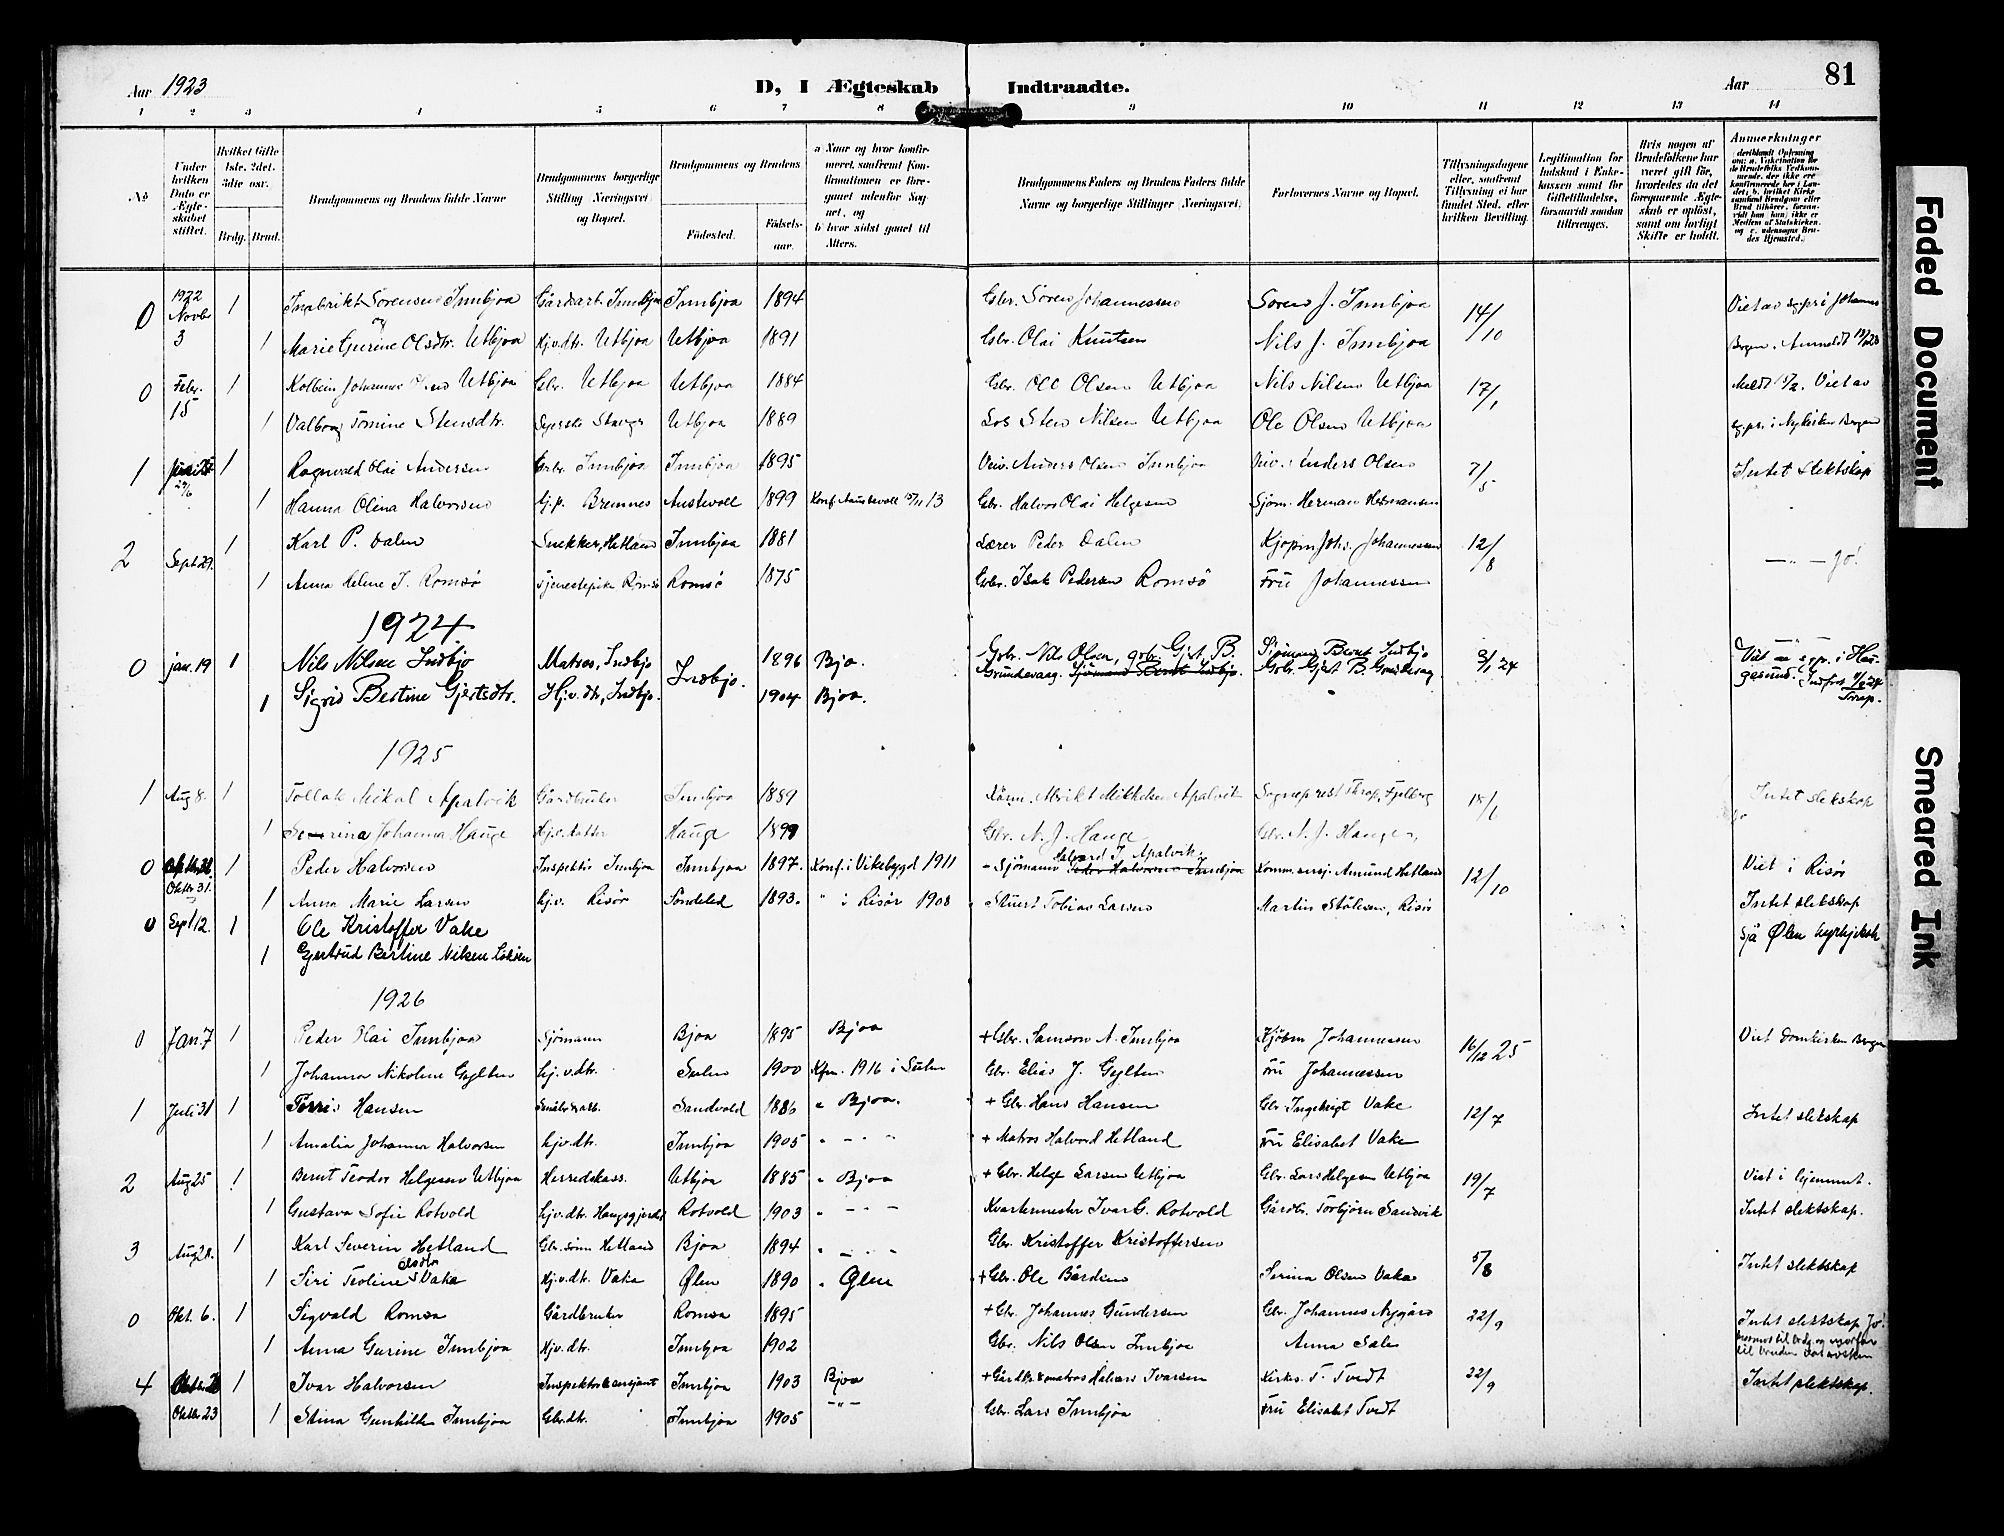 Aar 1923
D, I Ægteskab Indtraadte.
Aar 81
1 2 3 4 5 6 7 8 9 10 11 12 13 14
No
Under hvilken Dato er Ægteskabet stiftet.
Hvilket Gifte 1ste, 2det, 3die osv.
Brdg. Brud.
Brudgommens og Brudens fulde Navne
Brudgommens borgerlige Stilling (Næringsvei) og Bopæl.
Brudgommens og Brudens
Fødested. Fødselsaar.
a Naar og hvor konfirmeret, saafremt Konfirmationen er foregaaet udenfor Sognet, og
b hvor sidst gaaet til Alters.
Brudgommens Faders og Brudens Faders fulde Navne og borgerlige Stillinger (Næringsvei)
Forlovernes Navne og Bopæl.
Tillysningsdagene eller, saafremt Tillysning ei har fundet Sted, efter hvilken Bevilling.
Legitimation for Indskud i Enkekassen samt for Giftetilladelse, forsaavidt saadan tiltrænges.
Hvis nogen af Brudefolkene har været gift før, hvorledes da det foregaaende Ægteskab er opløst, samt om lovligt Skifte er holdt.
Anmerkninger
0 1922 Novbr 3 1 Ingbrikt Sørensen Innbjoa Gårdarb. Innbjoa Innbjoa 1894 Gbr. Søren Johannessen Søren J. Innbjoa 14/10 Viet av sgpr i Johannes
og
1 Marie Gurine Olsdtr. Utbjoa Hj.v.dtr. Utbjoa Utbjoa 1891 Gbr. Olai Knutsen Nils J. Innbjoa Bergen. Anmeldt
0 Febr. 15 1 Kolbein Johannes Olsen Utbjoa Gbr. Utbjoa Utbjoa 1884 Gbr. Ole Olsen Utbjoa Nils Nilsen Utbjoa 17/1 Viet av
1 Valborg Tomine Stensdtr. Utbjoa 1889 Los Sten Nilsen Utbjoa Ole Olsen Utbjoa sg.pr. i Nykirken Bergen
1 29/6 1 Ragnvald Olai Andersen Gbr. Innbjoa Innbjoa 1895 Anders Olsen Innbjoa Anders Olsen 7/5 Intet slektskap
1 Hanna Olina Halvorsen Hj.p. Bremnes Austevoll 1899 Konf. Austevoll 13 Gbr. Halvor Olai Helgesen Sjøm. Herman Hermansen
2 Sept 29. 1 Karl P. Dalen Snekker, Hetland Innbjoa 1881 Lærer Peder Dalen Kjøpm Johs. Johannessen 12/8 — „ — Jo!
1 Anna Helene I. Romsø Tjenestepike Romsø Romsø 1875 Gbr. Isak Pedersen Romsø Fru Johannessen
1924
0 jan. 19 1 Nils Nilsen Indbjo Matros, Indbjo Indbjo. 1896 Bjo. Gbr. Nils Olsen, gbr. Gjert B. Sjømand Bernt Indbjo 3/1 24
1 Sigrid Bertine Gjertsdtr. Hj.v.dtr, Indbjo. 1904 Bjoa. Grundevaag. Sjømand Bernt Indbjo. Gbr. Gjert B. Grundevaag
1925
1 Aug 8. 1 Tollak Mikal Apalvik Gårdbruker Innbjoa 1889 Mikkelsen Apalvik Sogneprest Thrap, Fjelberg Intet slekskap
1 Severina Johanna Hauge Hj.v. datter Hauge 1899 Gbr. N. J. Hauge Gbr. N. J. Hauge,
0 Oktbr 31. 1 Peder Halvorsen Inspektør Innbjoa Innbjoa 1897. Konf. i Vikebygd 1911 Sjömann Peder Halvorsen Innbjoa Halvard I. Apalvik. Amund Hetland 12/10 Viet i Risør
1 Anna Marie Larsen hj.v. Risør Söndeled 1893. " i Risør 1908 Stuert Tobias Larsen Martin Stölesen, Risør Intet slekskap
0 Sept 12. 1 Ole Kristoffer Vake
1 Gjertrud Bertine Nilsen Lökjen Sjå Ølen kyrkjebok
1926
0 Jan. 7 1 Peder Olai Innbjoa Sjömann Bjoa 1895 Bjoa + Gbr. Samson N. Innbjoa Kjöbm Johannessen 16/12 25 Viet Domkirken Bergen
1 Johanna Nikoline Gylten hj.v.dtr. Sulen 1900 Kfm. 1916 i Sulen Gbr. Elias J. Gylten Fru Johannessen
1 Juli 31 1 Torris Hansen Sandvold 1886 „ Bjoa. + Gbr. Hans Hansen Gbr Ingebrigt Vake 12/7 Intet slekskap
1 Amalia Johanna Halvorsen hj.v.dtr. Innbjoa 1905 „ — „ + Matros Halvord Hetland Fru Elisabet Vake
2 Aug 25 1 Bernt Teodor Helgesen Utbjoa Herredskass. Utbjoa 1885 „ Bjoa + Gbr. Helge Larsen Utbjoa Gbr. Lars Helgesen Utbjoa 19/7 Viet i hjemmet.
1 Gustava Sofie Rotvold hj.v.dtr. Haugsgjerdet Rotvold 1903 „ — „ — Kvartermester Ivar G. Rotvold Gårdbr. Torbjørn Sandvik Intet slektskap.
3 Aug 28. 1 Karl Severin Hetland Gbr. sønn Hetland Bjoa 1894 „ — „ — Gbr. Kristoffer Kristoffersen 5/8
1 Siri Teoline Olsdtr Vaka hj.v.dtr. Vaka Ølen 1890 „ Ølen + Gbr. Ole Bårdsen Serina Olsen Vaka Intet slektskap
0 Okt. 6. 1 Sigvald Romsa Gårdbruker Romsa 1895 + Gbr. Johannes Gundersen Gbr. Johannes Nygård 22/9 Intet slektskap Jo!
1 Anna Gurine Innbjoa Hj.v.dtr. Innbjoa 1902 Gbr. Nils Olsen Innbjoa Anna Sale mormor til brdg. og morfar til bruden var søsken
4 Oktbr 23 1 Ivar Halvorsen Innbjoa 1903 Bjoa + Gårdbr. & matros Halvard Ivarsen Kirkes. T. Tvedt 22/9 Intet slektskap.
1 Stina Gunhilde Innbjoa Gbr.dtr. Innbjoa 1905 — „ — Gbr. Lars Innbjoa Fru Elisabet Tvedt
Faded Document
Smeared Ink